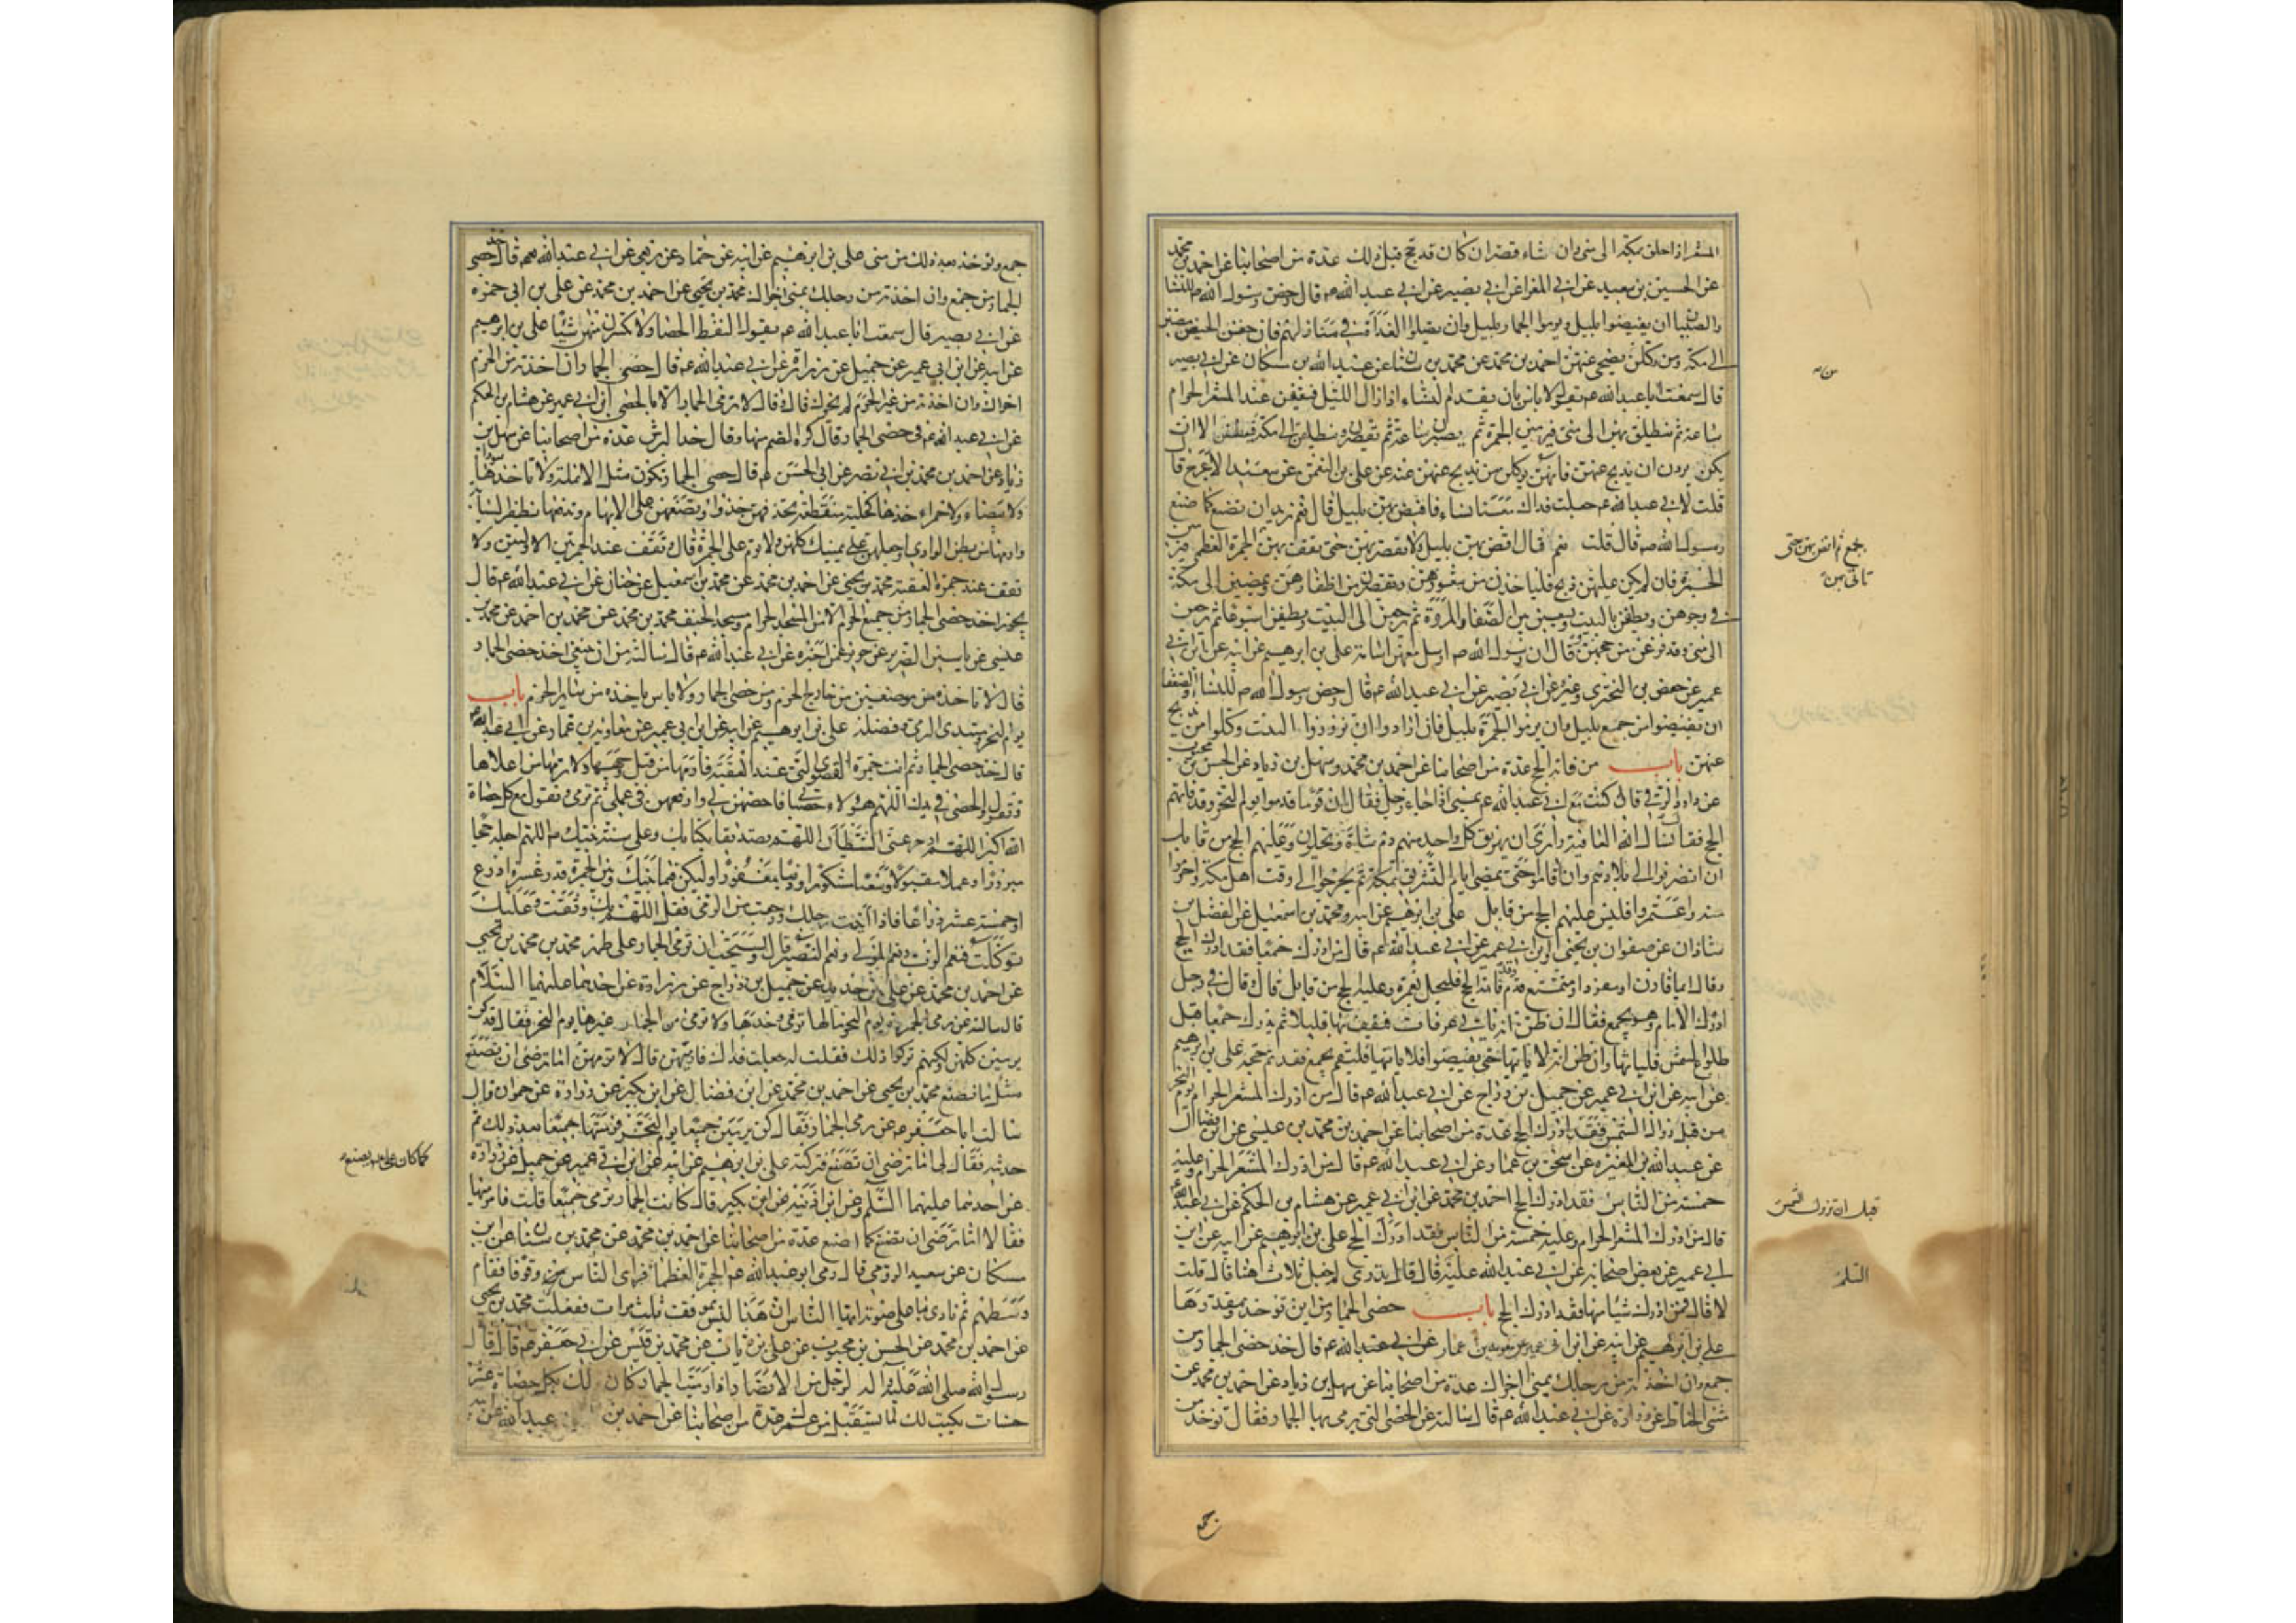 المشعر اذا حلق بمكة الى منى وان شاء قصر ان كان قد حج قبل ذلك عدة من اصحابنا عن احمد بن محمد
عن الحسين بن سعيد عن ابي المغرا عن ابي بصير عن ابي عبد الله ع قال رخص رسول الله ص للنساء
والصبيان ان يفيضوا بليل ويرموا الجمار بليل وان يصلوا الغداة في منازلهم فان خفن الحيض مضين
الى مكة ووكلن من يضحي عنهن احمد بن محمد عن محمد بن سنان عن عبد الله بن مسكان عن ابي بصير
قال سمعت ابا عبد الله ع يقول لا باس بان يقدم النساء اذا زال الليل فيقفن عند المشعر الحرام
ساعة ثم ينطلق بهن الى منى فيرمين الجمرة ثم يصبرن ساعة ثم يقصرن وينطلقن الى مكة فيطفن الا ان
يكن يردن ان يذبح عنهن فانهن يوكلن من يذبح عنهن عنه عن علي بن النعمن عن سعيد الاعرج قا
قلت لابي عبد الله ع جعلت فداك معنا نساء فافيض بهن بليل قال نعم تريد ان تصنع كما صنع
رسول الله ص قال قلت نعم فقال افض بهن بليل ولا تفض بهن حتى تقف بهن الجمرة العظمى فيرمين
الجمرة فان لم يكن عليهن ذبح فلياخذن من شعورهن ويقصرن من اظفارهن ويمضين الى مكة
في وجوههن ويطفن بالبيت ويسعين بين الصفا والمروة ثم يرجعن الى البيت ويطفن اسبوعا ثم يرجعن
الى منى وقد فرغن من حجهن وقال ان رسول الله ص ارسل معهن اسامة علي بن ابرهيم عن ابيه عن ابن ابي
عمير عن حفص بن البختري وغيره عن ابي بصير عن ابي عبد الله ع قال رخص رسول الله ص للنساء والضعفا
ان يفيضوا من جمع بليل وان يرموا الجمرة بليل فان ارادوا ان يزوروا البيت وكلوا من يذبح
عنهن باب من فاته الحج عدة من اصحابنا عن احمد بن محمد وسهل بن زياد عن الحسن بن محبوب
عن داود الرقي قال كنت مع ابي عبد الله ع بمنى اذ جاء رجل فقال ان قوما قدموا يوم النحر وقد فاتهم
الحج فقال نسال الله العافية وارى ان يهريق كل واحد منهم دم شاة ويحلون وعليهم الحج من قابل
ان انصرفوا الى بلادهم وان اقاموا حتى تمضي ايام التشريق بمكة ثم يخرجوا الى وقت اهل مكة واحرموا
منه واعتمروا فليس عليهم الحج من قابل علي بن ابرهيم عن ابيه ومحمد بن اسمعيل عن الفضل بن
شاذان عن صفوان بن يحيى وابن ابي عمير عن ابي عبد الله ع قال من ادرك جمعا فقد ادرك الحج
وقال ايما قارن او مفرد او متمتع قدم وقد فاته الحج فليحل بعمرة وعليه الحج من قابل قال وقال في رجل
ادرك الامام وهو بجمع فقال ان ظن انه ياتي عرفات فيقف بها قليلا ثم يدرك جمعا قبل
طلوع الشمس فلياتها وان ظن انه لا ياتيها حتى يفيضوا فلا ياتها فليقم بجمع فقد تم حجه علي بن ابرهيم
عن ابيه عن ابن ابي عمير عن جميل بن دراج عن ابي عبد الله ع قال من ادرك المشعر الحرام يوم النحر
من قبل زوال الشمس فقد ادرك الحج عدة من اصحابنا عن احمد بن محمد بن عيسى عن ابن فضال
عن عبد الله بن المغيرة عن اسحق بن عمار عن ابي عبد الله ع قال من ادرك المشعر الحرام وعليه
خمسة من الناس فقد ادرك الحج احمد بن محمد عن ابن ابي عمير عن هشام بن الحكم عن ابي عبد الله ع
قال من ادرك المشعر الحرام وعليه خمسة من الناس فقد ادرك الحج علي بن ابرهيم عن ابيه عن ابن
ابي عمير عن بعض اصحابه عن ابي عبد الله عليه قال قال تدري لم جعل ثلاث هنا قال قلت
لا قال فمن ادرك شيئا منها فقد ادرك الحج باب حصى الجمار من اين توخذ ومقدارها
علي بن ابرهيم عن ابيه عن ابن ابي عمير عن معوية بن عمار عن ابي عبد الله ع قال خذ حصى الجمار من
جمع وان اخذته من رحلك بمنى اجزاك عدة من اصحابنا عن سهل بن زياد عن احمد بن محمد عن
مثنى الحناط عن زرارة عن ابي عبد الله ع قال سالته عن الحصى التي يرمى بها الجمار فقال توخذ من
من
بجمع ثم افض بهن حتى
تاتي بهن
قبل ان تزول الشمس
السلم
جمع
جمع وتوخذ بعد ذلك من منى علي بن ابرهيم عن ابيه عن حماد عن ربعي عن ابي عبد الله ع قال خذ حصى
الجمار من جمع وان اخذته من رحلك بمنى اجزاك محمد بن يحيى عن احمد بن محمد عن علي بن ابي حمزة
عن ابي بصير قال سمعت ابا عبد الله ع يقول التقط الحصا ولا تكسرن منهن شيئا علي بن ابرهيم
عن ابيه عن ابن ابي عمير عن جميل عن زرارة عن ابي عبد الله ع قال حصى الجمار ان اخذته من الحرم
اجزاك وان اخذته من غير الحرم لم يجزك قال وقال لا ترمي الجمار الا بالحصى ابن ابي عمير عن هشام بن الحكم
عن ابي عبد الله ع في حصى الجمار قال كره الصم منها وقال خذ البرش عدة من اصحابنا عن سهل بن
زياد عن احمد بن محمد بن ابي نصر عن ابي الحسن ع قال حصى الجمار تكون مثل الانملة ولا تاخذها سودا
ولا بيضاء ولا حمراء خذها كحلية منقطة تخذفهن خذفا وتضعها على الابهام وتدفعها بظفر السبابة
وارمها من بطن الوادي واجعلهن على يمينك كلهن ولا ترم على الجمرة قال وتقف عند الجمرتين الاوليين ولا
تقف عند جمرة العقبة محمد بن يحيى عن احمد بن محمد عن محمد بن اسمعيل عن حنان عن ابي عبد الله ع قال
يجوز اخذ حصى الجمار من جميع الحرم الا من المسجد الحرام ومسجد الخيف محمد بن يحيى عن محمد بن احمد عن محمد بن
عيسى عن ياسين الضرير عن حريز عمن اخبره عن ابي عبد الله ع قال سالته من اين ينبغي اخذ حصى الجمار
قال لا تاخذه من موضعين من خارج الحرم ومن حصى الجمار ولا باس باخذه من سائر الحرم باب
يوم النحر ومبتدى الرمي وفضله علي بن ابرهيم عن ابيه عن ابن ابي عمير عن معاوية بن عمار عن ابي عبد الله ع
قال خذ حصى الجمار ثم ائت الجمرة القصوى التي عند العقبة فارمها من قبل وجهها ولا ترمها من اعلاها
وتقول والحصى في يدك اللهم هؤلاء حصياتي فاحصهن لي وارفعهن في عملي ثم ترمي وتقول مع كل حصاة
الله اكبر اللهم ادحر عني الشيطان اللهم تصديقا بكتابك وعلى سنة نبيك ص اللهم اجعله حجا
مبرورا وعملا مقبولا وسعيا مشكورا وذنبا مغفورا وليكن فيما بينك وبين الجمرة قدر عشرة اذرع
او خمسة عشر ذراعا فاذا اتيت رحلك ورجعت من الرمي فقل اللهم بك وثقت وعليك
توكلت فنعم الرب ونعم المولى ونعم النصير قال ويستحب ان ترمى الجمار على طهر محمد بن يحيى
عن احمد بن محمد عن علي بن حديد عن جميل بن دراج عن زرارة عن احدهما عليهما السلام
قال سالته عن رمي الجمرة يوم النحر مالها ترمى وحدها ولا ترمى من الجمار غيرها يوم النحر فقال قد كن
يرمين كلهن ولكنهم تركوا ذلك فقلت له جعلت فداك فارميهن قال لا ترمهن اما ترضى ان تصنع
مثل ما نصنع محمد بن يحيى عن احمد بن محمد عن ابن فضال عن ابن بكير عن زرارة عن حمران قال
سالت ابا جعفر ع عن رمي الجمار فقال كن يرمين جميعا يوم النحر فرميتها جميعا بعد ذلك ثم
حدثته فقال لي اما ترضى ان تصنع فتركته علي بن ابرهيم عن ابيه عن ابن ابي عمير عن جميل عن زرارة
عن احدهما عليهما السلم وعن ابن اذينة عن ابن بكير قال كانت الجمار ترمى جميعا قلت فارميها
فقال لا اما ترضى ان تصنع كما اصنع عدة من اصحابنا عن احمد بن محمد عن محمد بن سنان عن ابن
مسكان عن سعيد الرومي قال رمى ابو عبد الله ع الجمرة العظمى فراى الناس وقوفا فقام
وسطهم ثم نادى باعلى صوته ايها الناس ان هذا ليس بموقف ثلث مرات ففعلت محمد بن يحيى
عن احمد بن محمد عن الحسن بن محبوب عن علي بن رئاب عن محمد بن قيس عن ابي جعفر ع قال قال
رسول الله صلى الله عليه واله لرجل من الانصار اذا رميت الجمار كان لك بكل حصاة عشر
حسنات يكتب لك لما يستقبل من عمرك عدة من اصحابنا عن احمد بن عبد الله عن
كما كان علي ع يصنع